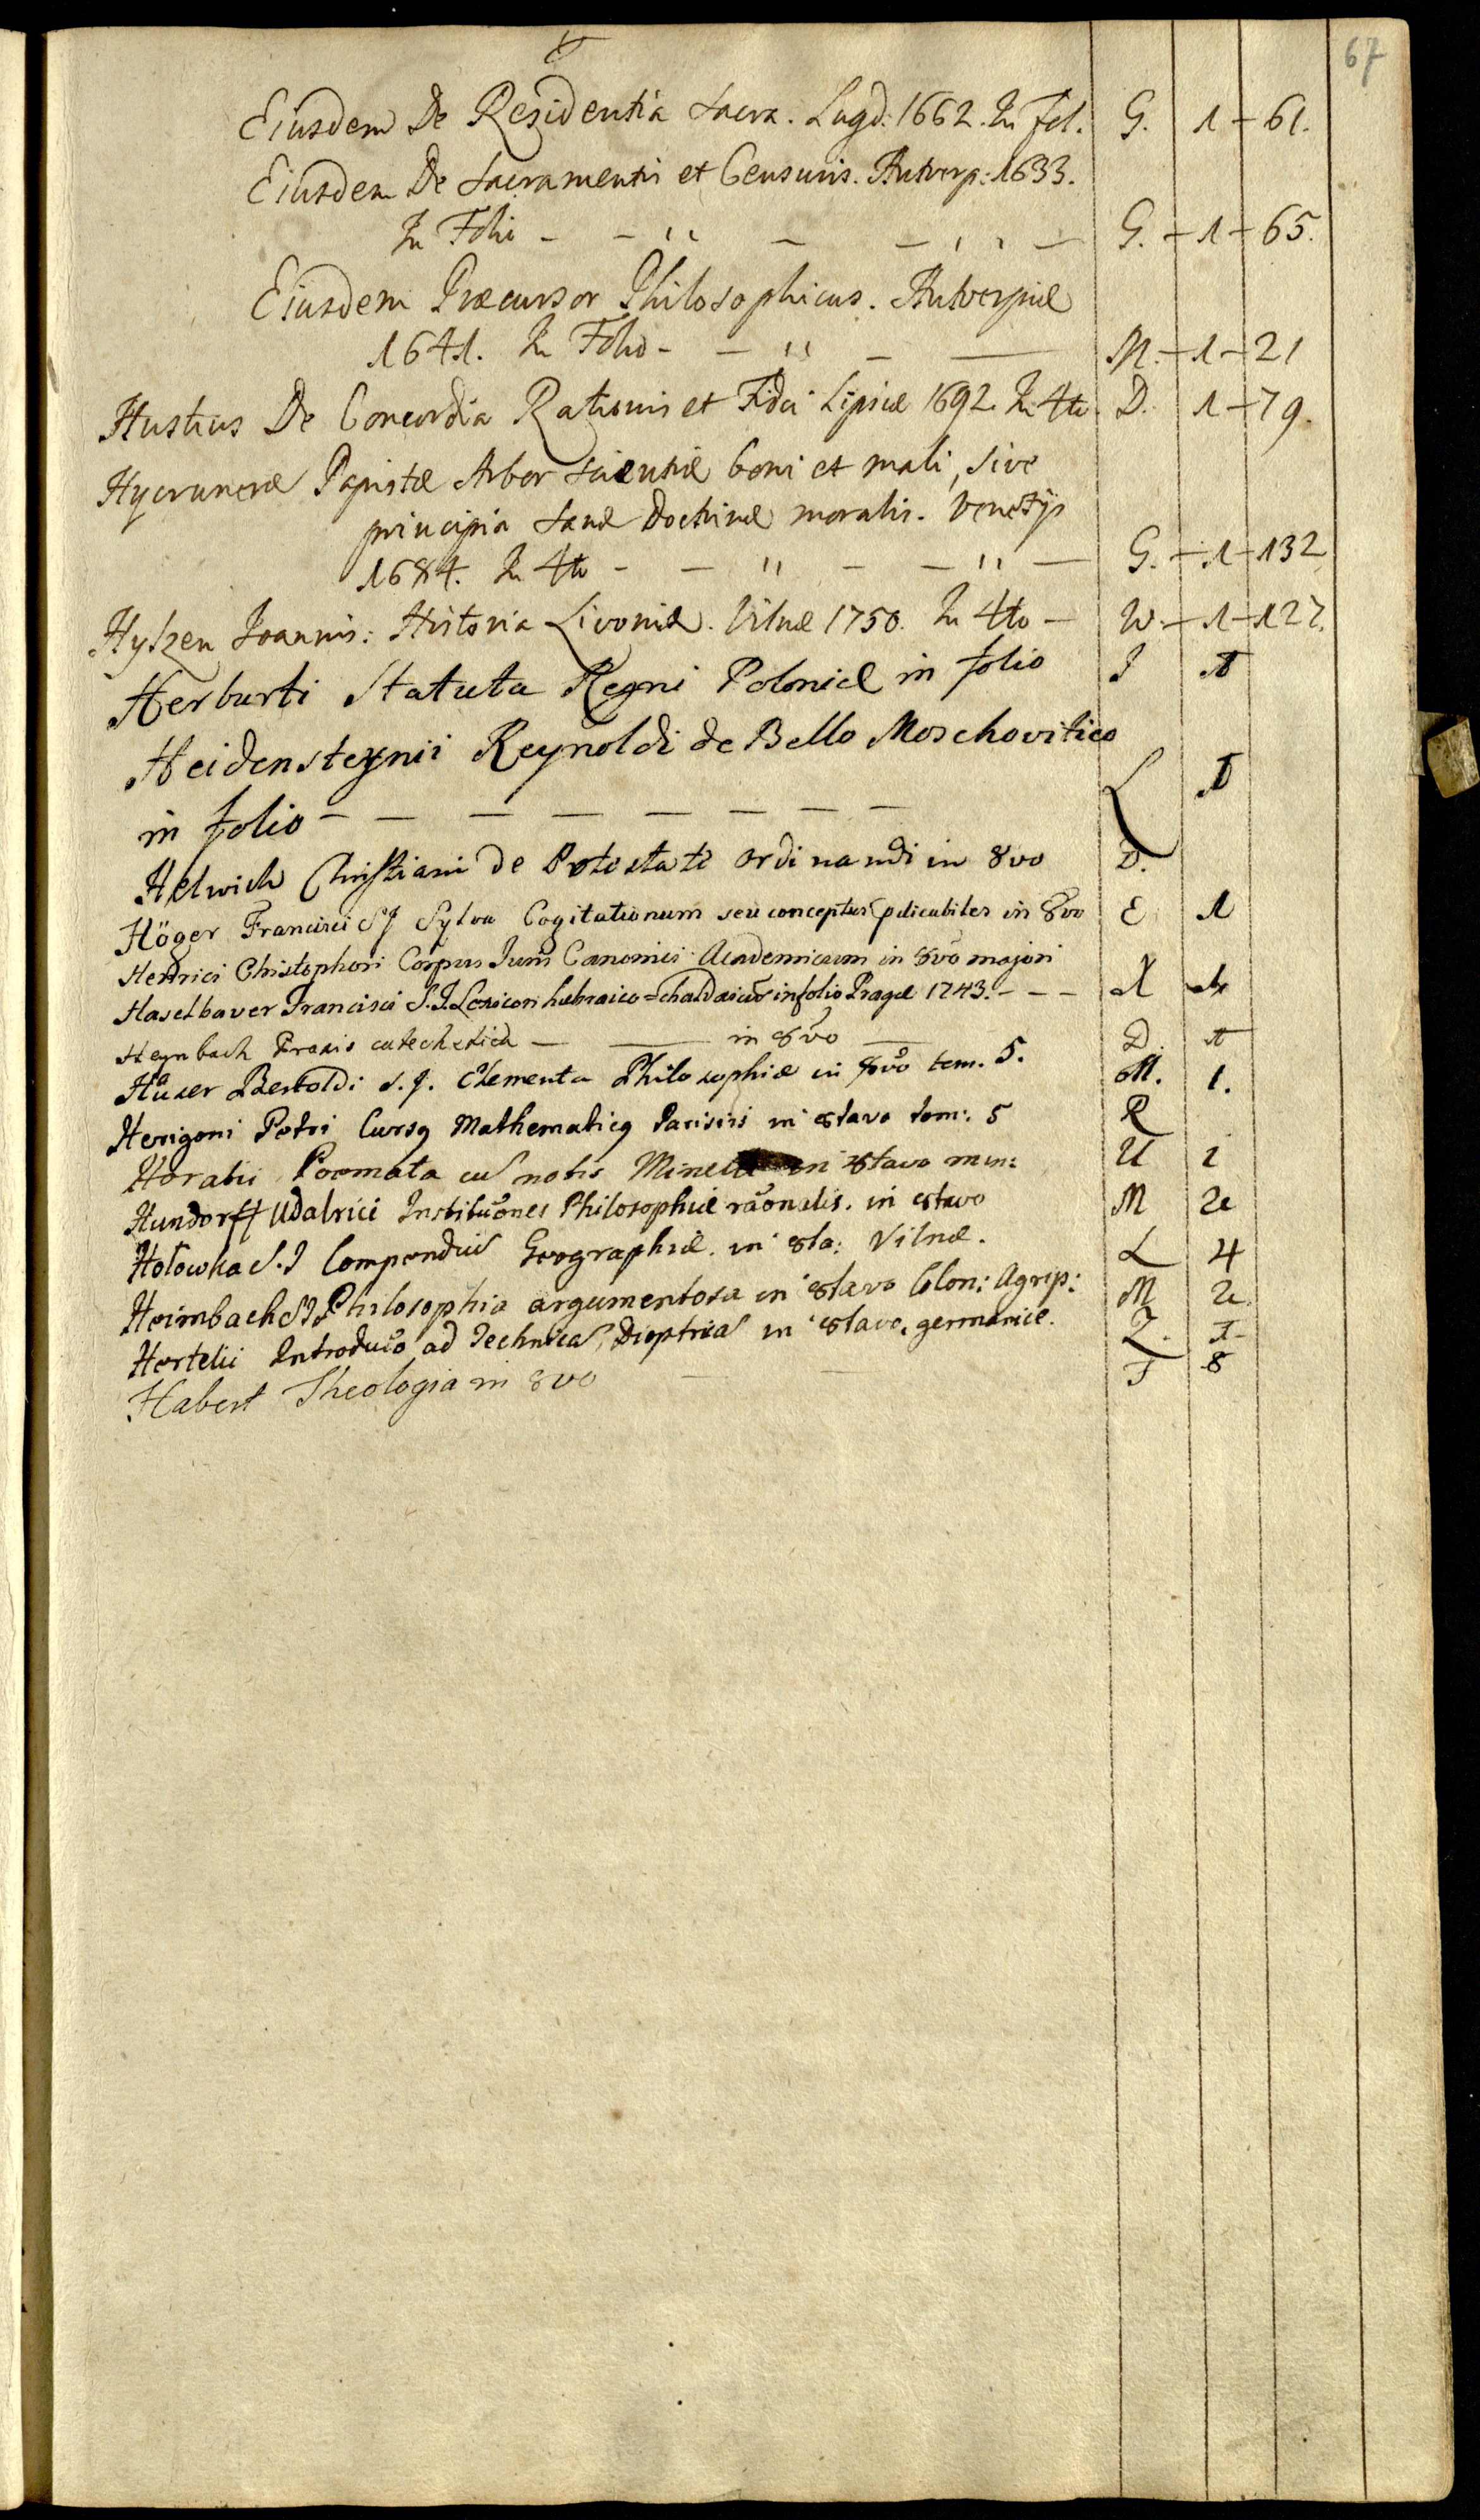 67
Eiusdem De Residentia Sacra. Lugd: 1662. In fol. G. 1 - 61.
Eiusdem De Sacramentis et Censuris. Antverp: 1633.
In Folio - - " - - " - G. - 1 - 65.
Eiusdem Præcursor Philosophicus. Antverpiæ
1641. In Folio - - " - - M. - 1 - 21
Hustius De Concordia Rationis et Fidei Lipsiæ 1692. In 4to. D. 1 - 79.
Papistæ Arbor scientiæ boni et mali, sive
principia sanæ Doctrinæ moralis. Venetijs
1684. In 4to - - " - - " - G. - 1 - 132
Hylzen Joannis: Historia Livoniæ. Vilnæ 1750. In 4to - W. - 1 - 127.
Herburti Statuta Regni Poloniæ in folio J 1
Heidensteynii Reynoldi de Bello Moschovitico
in folio - - - - - - - - L 1
Helwich Christiani de Potestate ordinandi in 8vo D.
Höger Francisci SJ Sylva Cogitationum seu conceptus pdicabiles in 8vo E 1
Henrici Christophori Corpus Juris Canonici Academicum in 8vo majori
Haselbaver Francisci S.J. Lexicon hebraico=chaldaicũ in folio Pragæ 1743. - - - X
Heynbach Praxis catechetica - - in 8vo - D. 1
Haũser Bertoldi S.J. Elementa Philosophiæ in 8vo tom. 5. M. 1.
Herigoni Petri Cursq Mathematicq Parisiis in 8tavo tom: 5 R
Horatii Poemata cũ notis in 8tavo min: U 2
Hundorff Udalrici Institũones Philosophiæ rãonalis. in 8tavo M 2
Hołowka S.J Compendiũ Geographiæ. in 8ta: Vilnæ. L 4
Heimbach SJ Philosophia argumentosa in 8tavo Colon: Agrip: M 2
Hertelii Introducõ ad Technicã Dioptricã in 8tavo, germanice. Z. 1
Habert Theologia in 8vo - - F 8